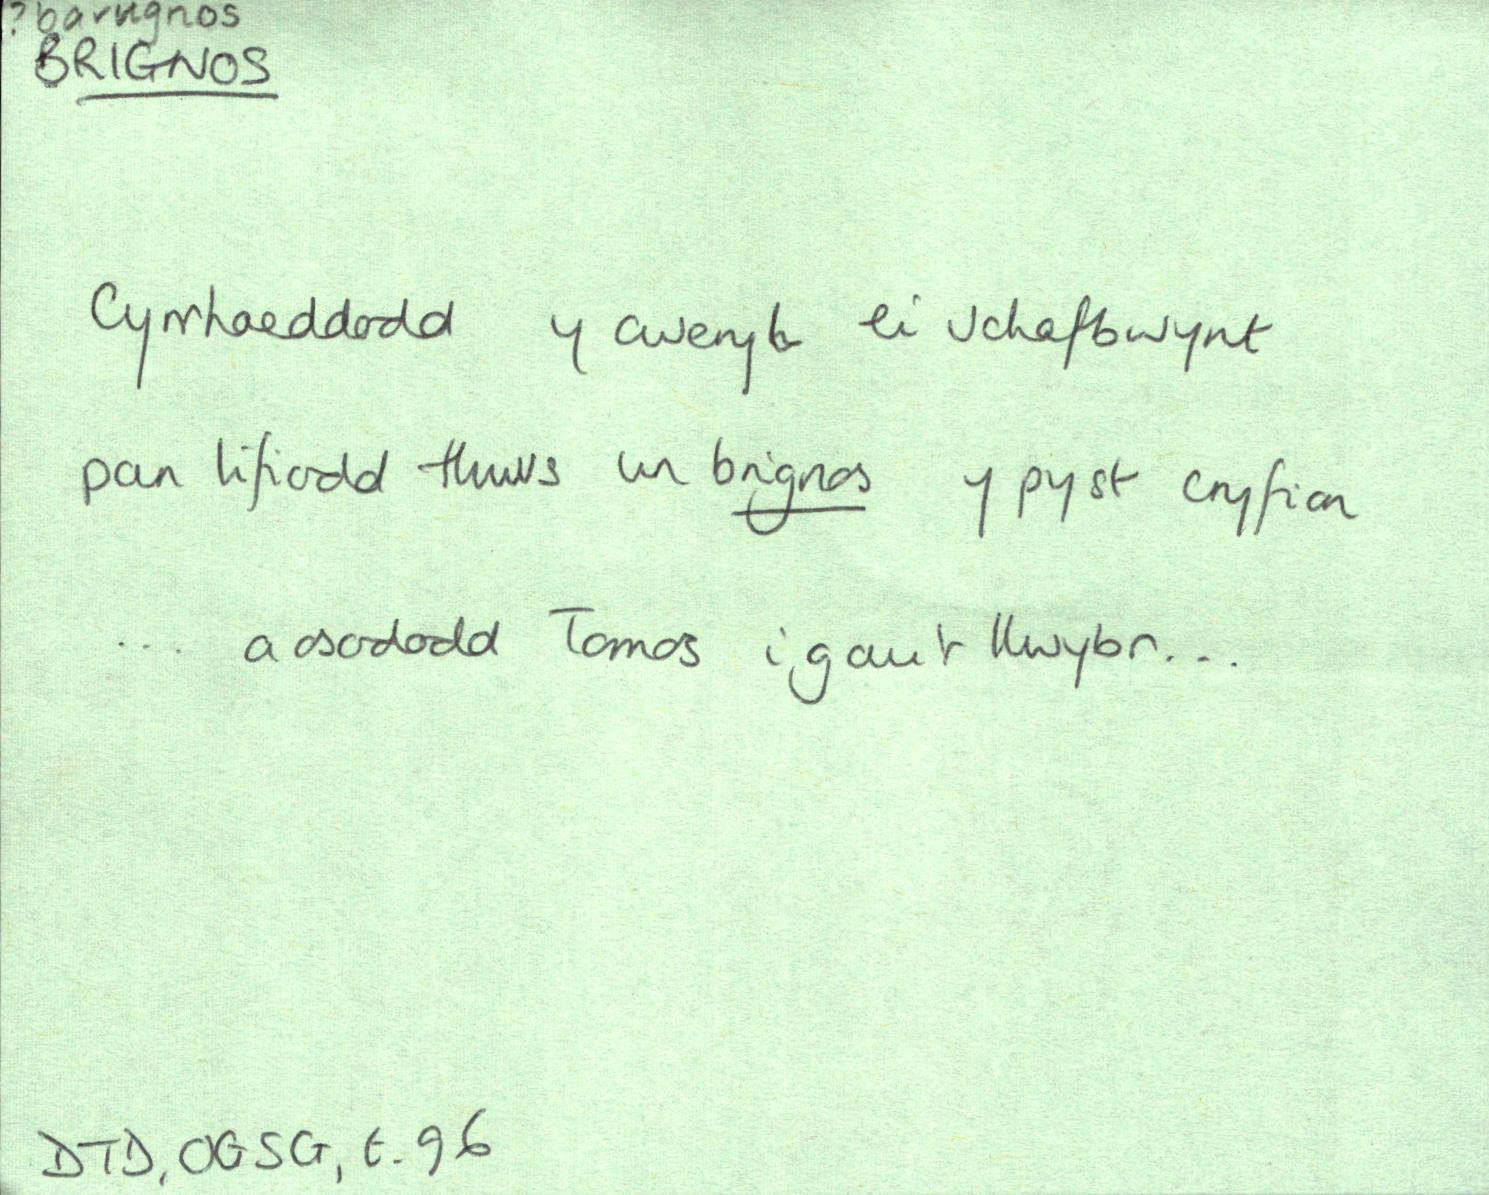 ?barugnos
BRIGNOS
Cyrrhaeddodd y cweryl ei uchafbwynt
pan lifiodd thuvs un brignos y pyst cryfion
... a osododd Tomos i gau'r llwybr...
DTD, OGSG, t. 96